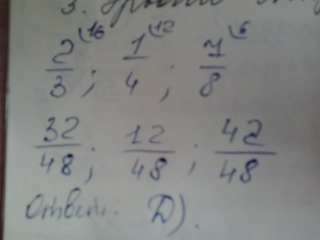 3.
2/3 (16; 1/4 (12; 7/8 (6
32/48; 12/48; 42/48
Ответ: D).